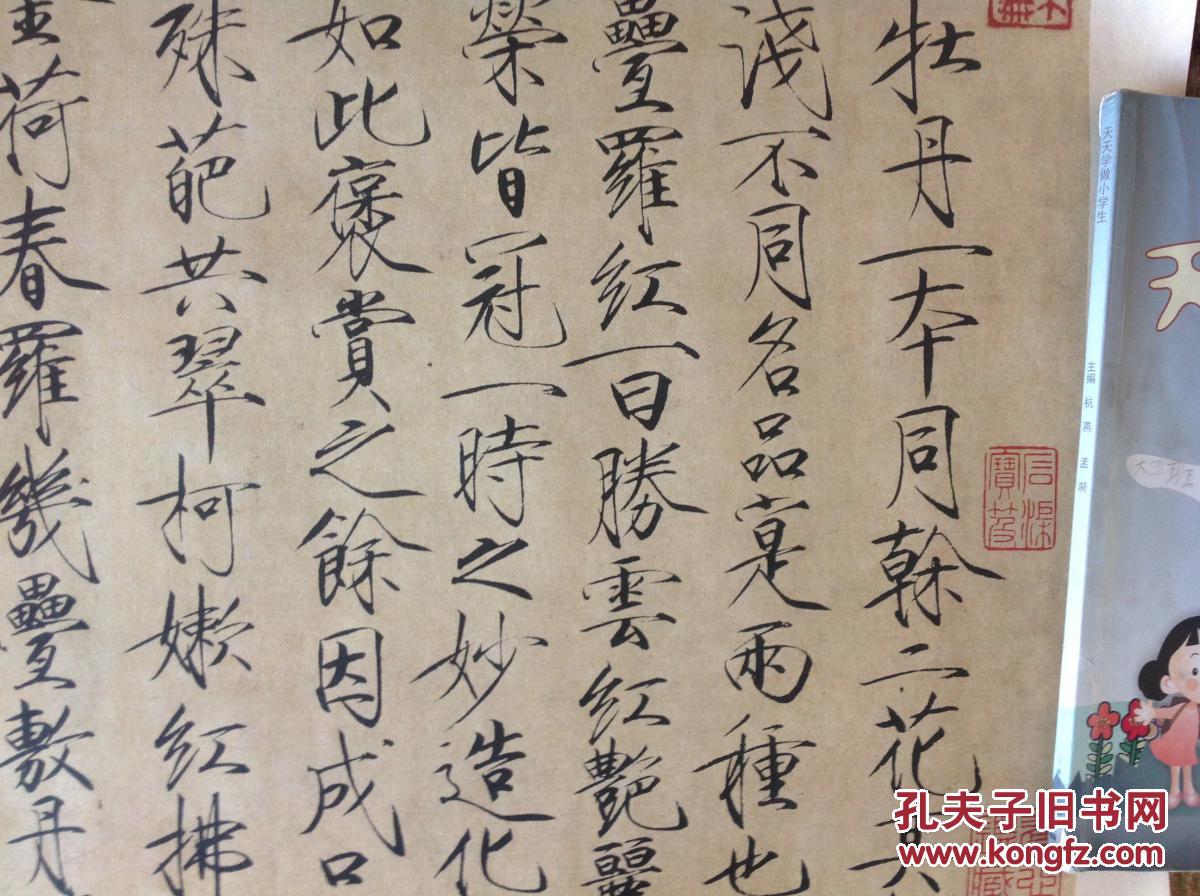 牡丹一本同幹二花其
淺不同名品寔兩種也
疊羅紅一曰勝雲紅艷麗
榮皆冠一時之妙造化
如此褒賞之餘因成口
殊葩共翠柯嫩紅拂
金荷春羅幾疊敷丹
天天学做小学生
主编 杭燕 孟
天
孔夫子旧书网
www.kongfz.com